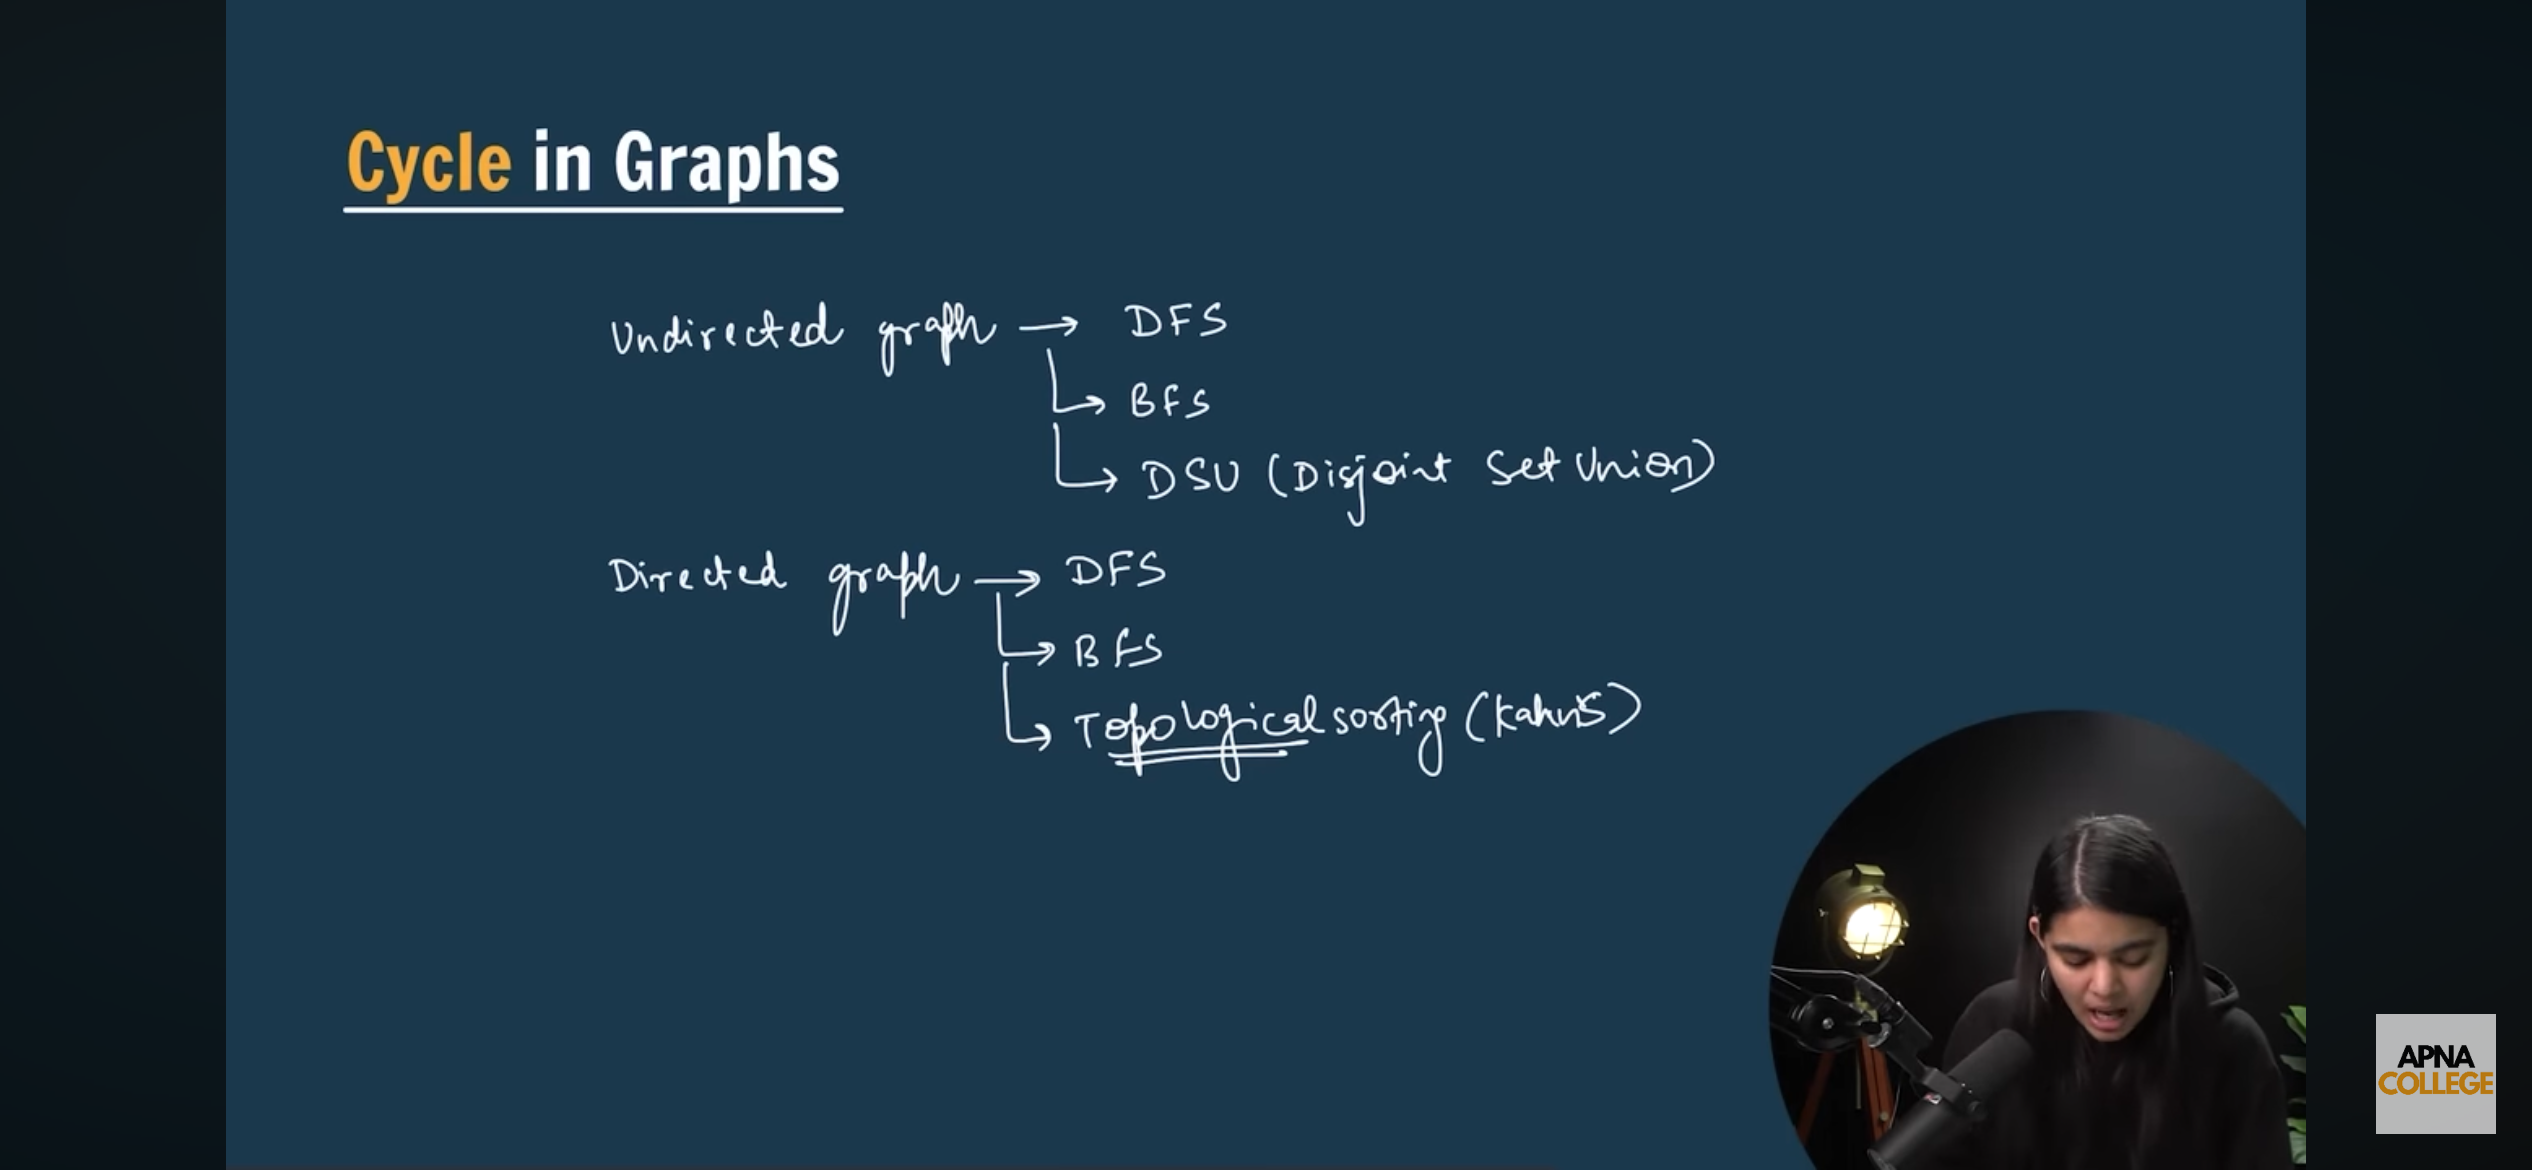 Cycle in Graphs
Undirected graph → DFS
→ BFS
→ DSU (Disjoint Set Union)
Directed graph → DFS
→ BFS
→ Topological sorting (Kahn's)
APNA
COLLEGE